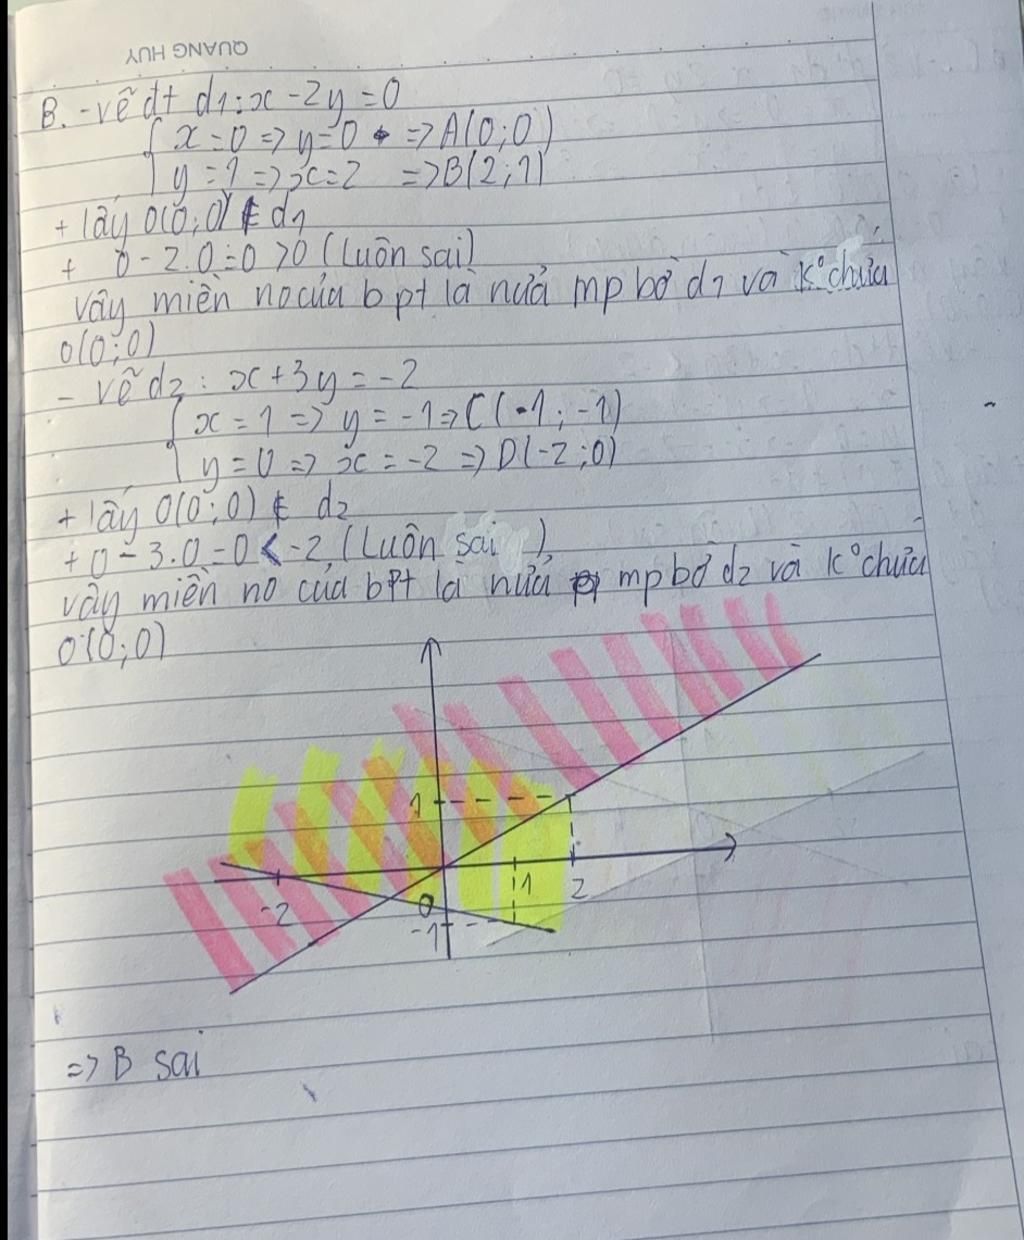 QUANG HUY
B. - vẽ đt d1: x - 2y = 0
{ x = 0 => y = 0 => A(0;0)
y = 1 => x = 2 => B(2;1)
+ lấy O(0;0) ∉ d1
+ 0 - 2.0 = 0 > 0 (Luôn sai)
vậy miền no của bpt là nửa mp bờ d1 và k° chứa
O(0;0)
- vẽ d2 : x + 3y = -2
{ x = 1 => y = -1 => C(-1;-1)
y = 0 => x = -2 => D(-2;0)
+ lấy O(0;0) ∉ d2
+ 0 - 3.0 = 0 < -2 (Luôn sai)
vậy miền no của bpt là nửa mp bờ d2 và k° chứa
O(0;0)
1
-2
0
1
2
-1
=> B sai